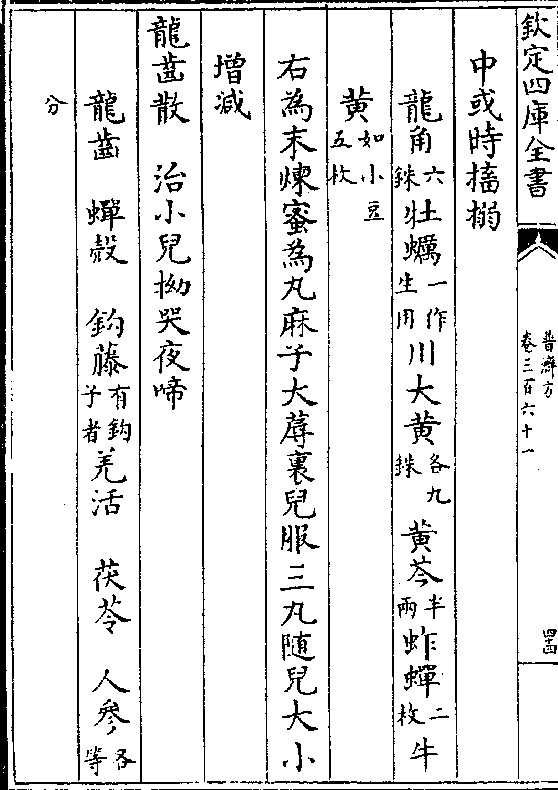 欽定四庫全書
普濟方
卷三百六十一
中或時搐搦
龍角六銖牡蠣一作生用川大黃各九銖黃芩半兩蚱蟬二枚牛
黃如小豆五枚
右為末煉蜜為丸麻子大蓐裏兒服三丸隨兒大小
增減
龍齒散 治小兒拗哭夜啼
龍齒 蟬殼 鈎藤有鈎子者羌活 茯苓 人參各等
分